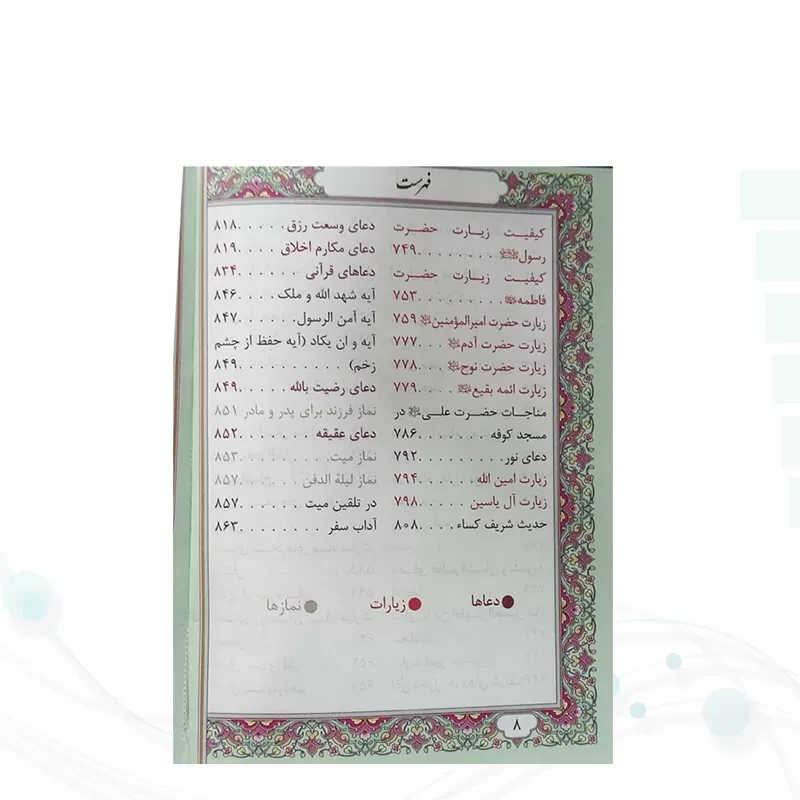 فهرست
کیفیت زیارت حضرت
رسولﷺ ........ ۷۴۹
کیفیت زیارت حضرت
فاطمه ......... ۷۵۳
زیارت حضرت امیرالمؤمنین ۷۵۹
زیارت حضرت آدم ....۷۷۷
زیارت حضرت نوح ....۷۷۸
زیارت ائمه بقیع ....۷۷۹
مناجات حضرت علی در
مسجد کوفه ........۷۸۶
دعای نور..........۷۹۲
زیارت امین الله .....۷۹۴
زیارت آل یاسین .....۷۹۸
حدیث شریف کساء ....۸۰۸
دعای وسعت رزق......۸۱۸
دعای مکارم اخلاق ....۸۱۹
دعاهای قرآنی ......۸۳۴
آیه شهد الله و ملک ....۸۴۶
آیه آمن الرسول......۸۴۷
آیه و ان یکاد (آیه حفظ از چشم
زخم) ..........۸۴۹
دعای رضیت بالله .....۸۴۹
نماز فرزند برای پدر و مادر ۸۵۱
دعای عقیقه .......۸۵۲
نماز میت.........۸۵۳
نماز لیلة الدفن .....۸۵۷
در تلقین میت ......۸۵۷
آداب سفر ........۸۶۳
دعاها
زیارات
نمازها
۸